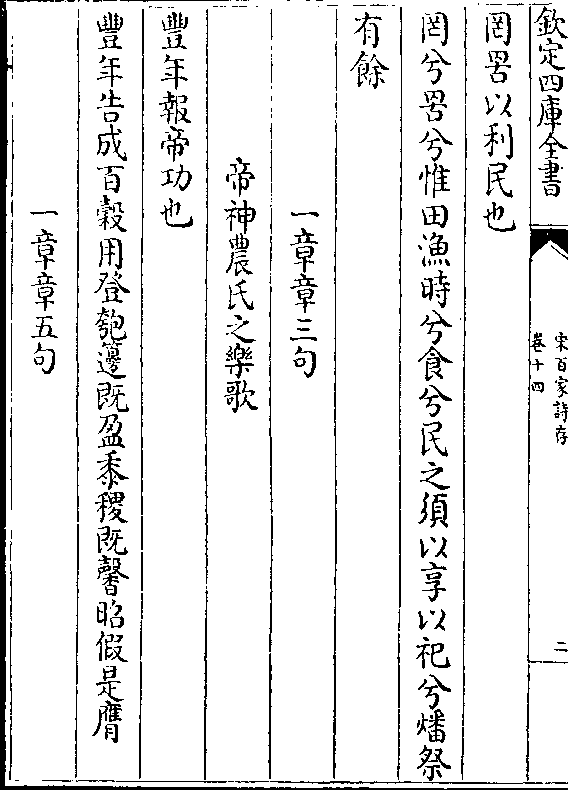 欽定四庫全書
宋百家詩存
卷十四
二
罔罟以利民也
罔兮罟兮惟田漁時兮食兮民之須以享以祀兮燔祭
有餘
一章章三句
帝神農氏之樂歌
豐年報帝功也
豐年告成百穀用登匏籩既盈黍稷既馨昭假是膺
一章章五句